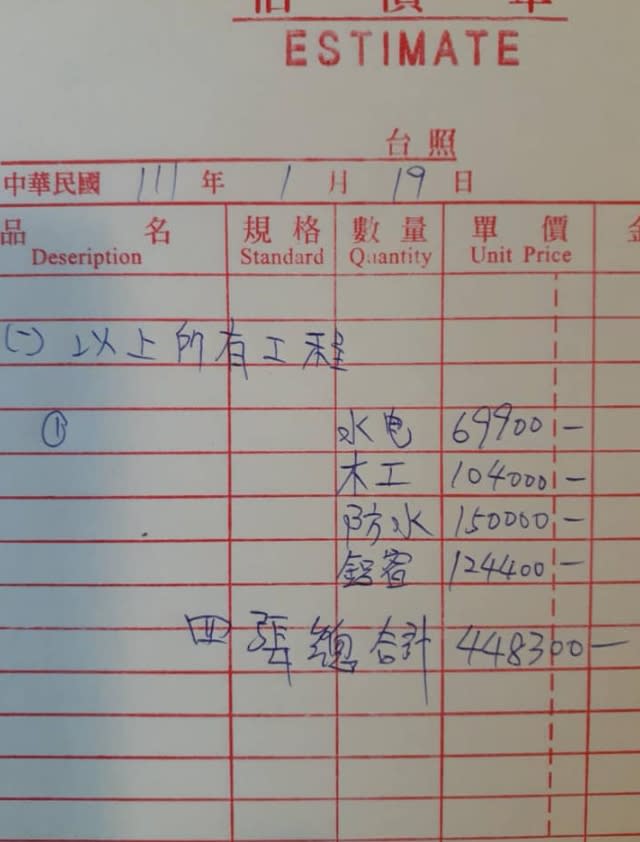 估價單
ESTIMATE
台照
中華民國 111 年 1 月 19 日
品名 規格 數量 單價
Deseription Standard Quantity Unit Price
(一) 以上所有工程
① 水电 69900-
木工 104000-
防水 150000-
鋁窗 124400-
四張總合計 448300-